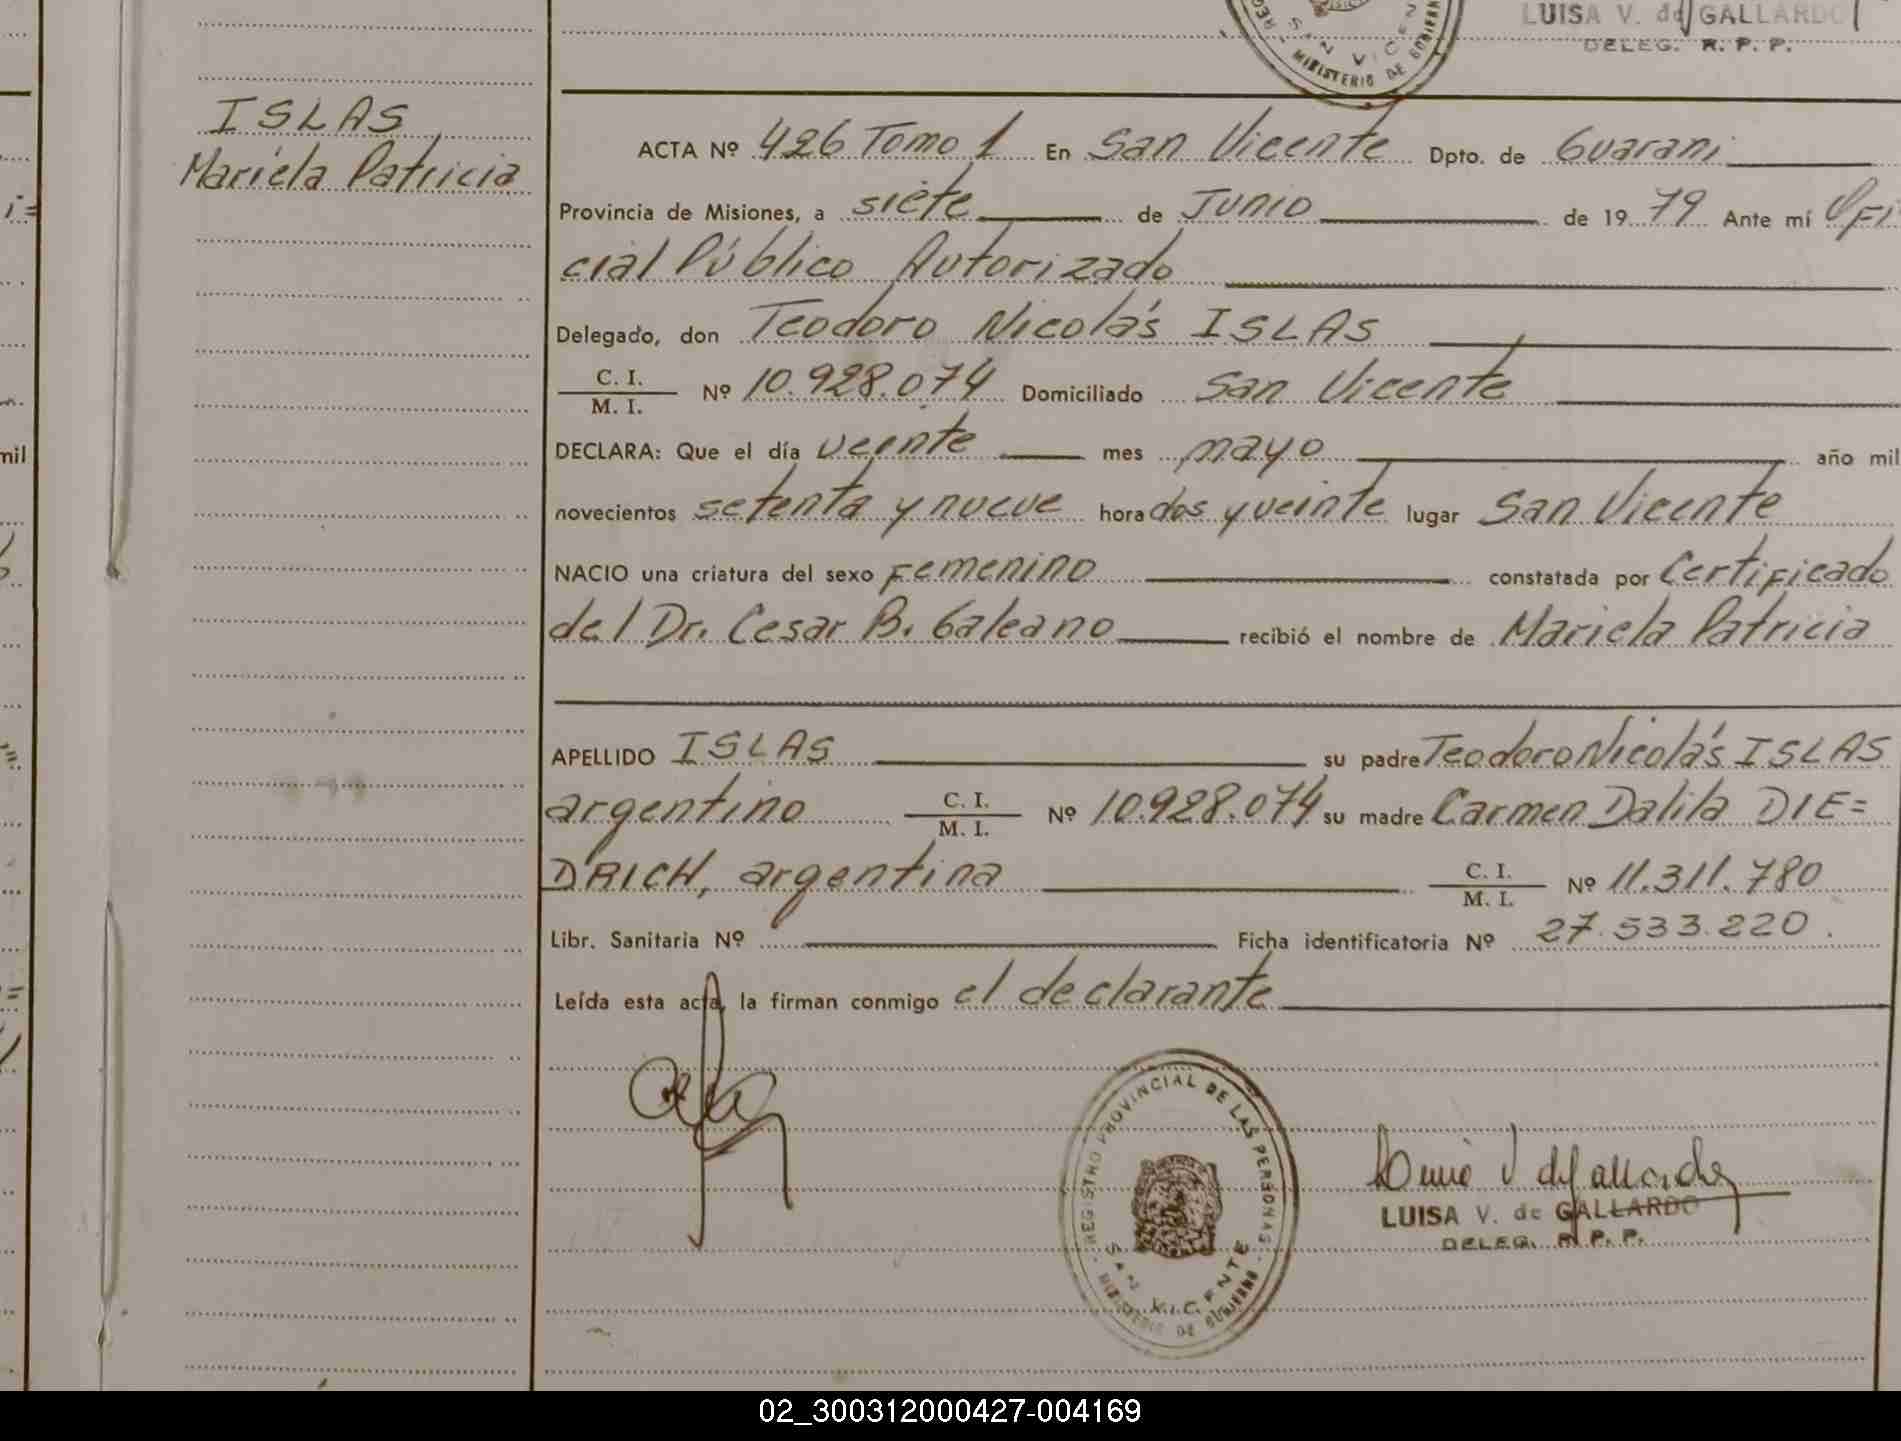 LUISA V. de GALLARDO
DELEG. R. P. P.
SAN VICENTE
MINISTERIO DE GOBIERNO
ISLAS
Mariela Patricia
ACTA Nº 426 Tomo 1 En San Vicente Dpto. de Guaraní
Provincia de Misiones, a siete de Junio de 19 79 Ante mí Ofi
cial Público Autorizado
Delegado, don Teodoro Nicolás ISLAS
C. I.
M. I. Nº 10.928.074 Domiciliado San Vicente
DECLARA: Que el día veinte mes mayo año mil
novecientos setenta y nueve hora dos y veinte lugar San Vicente
NACIO una criatura del sexo Femenino constatada por Certificado
del Dr. Cesar B. Galeano recibió el nombre de Mariela Patricia
APELLIDO ISLAS su padre Teodoro Nicolás ISLAS
argentino C. I. M. I. Nº 10.928.074 su madre Carmen Dalila DIE=
DRICH, argentina C. I. M. I. Nº 11.311.780
Libr. Sanitaria Nº Ficha identificatoria Nº 27.533.220.
Leída esta acta, la firman conmigo el declarante
REGISTRO PROVINCIAL DE LAS PERSONAS
SAN VICENTE
MINISTERIO DE GOBIERNO
LUISA V. de GALLARDO
DELEG. R. P. P.
mil
02_300312000427-004169